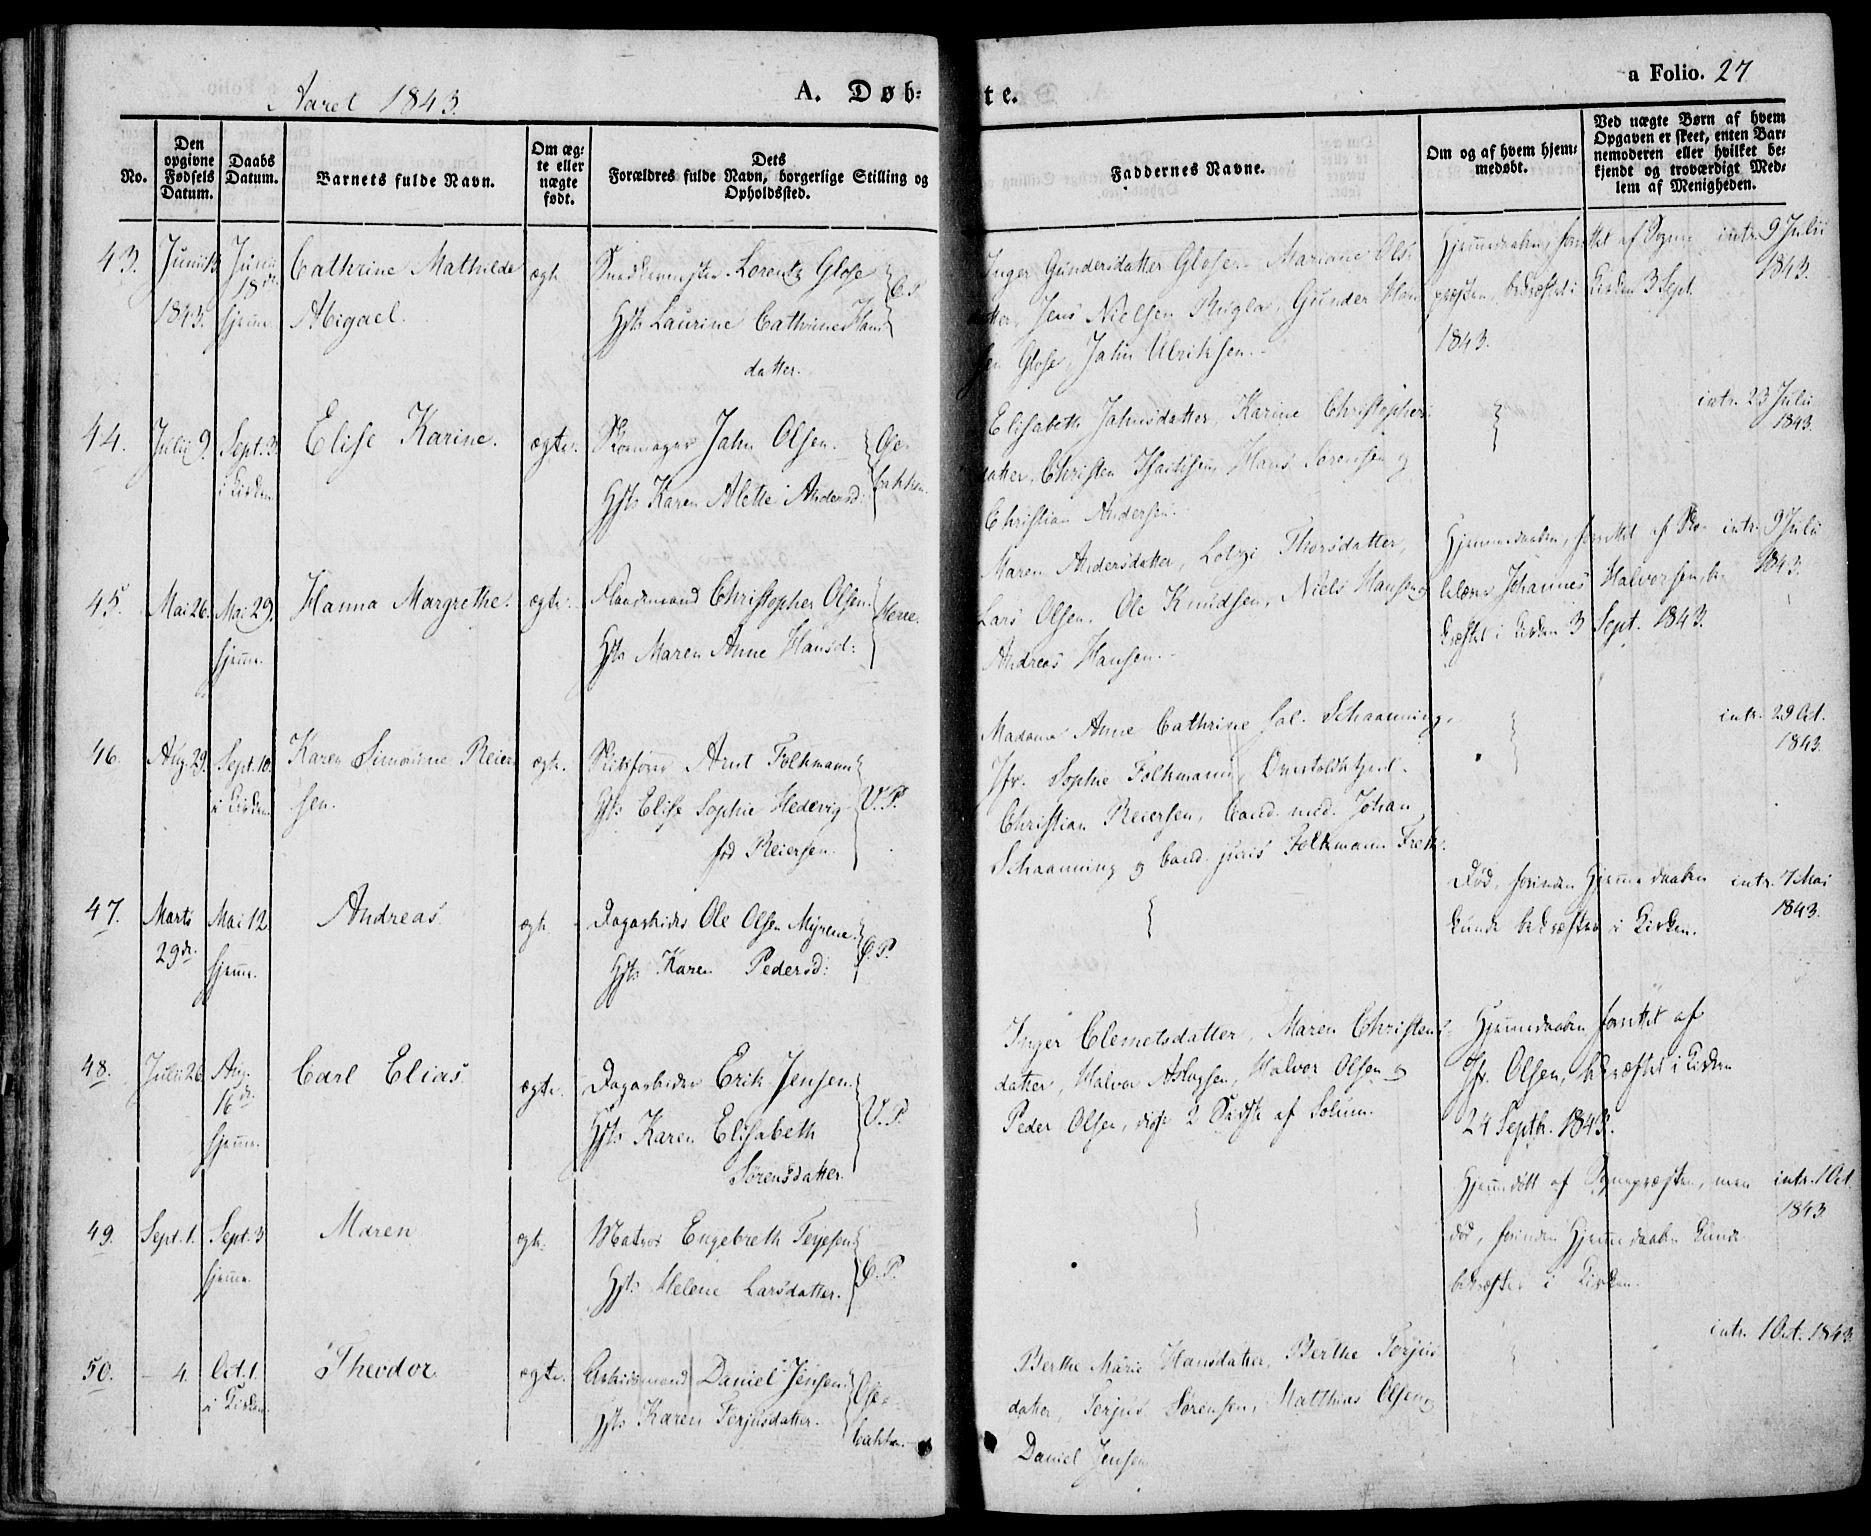 Aaret 1843.
A. Døb-
te.
a Folio. 27
No.
Den
opgivne
Fødsels
Datum.
Daabs
Datum.
Barnets fulde Navn.
Om æg-
te eller
uægte
født.
Dets
Forældres fulde Navn, borgerlige Stilling og
Opholdssted.
Faddernes Navne.
Om og af hvem hjem-
medøbt.
Ved uægte Børn af hvem
Opgaven er skeet, enten Bar-
nemoderen eller hvilket be-
kjendt og troværdigt Med-
lem af Menigheden.
43.
Junii 13
1843.
Junii
18de
hjem.
Cathrine Mathilde
Abigael.
ægt.
Snedkermester Lorentz Glose
Hst. Laurine Cathrine Hans
datter.
Inger Gundersdatter Glosen. Mariane Ols-
datter, Jens Nielsen Rugla, Gunder Han
sen Glose, Jahn Ulriksen.
Hjemmedaaben, forrettet af Sogne-
præsten, bekræftet i Kirken 3 Sept.
1843.
intr. 9 Julii
1843.
44.
Julii 9.
Sept. 3
i Kirken
Elise Karine.
ægte.
Skomager Jahn Olsen.
Hst. Karen Alette Andersd:
Ose-
bakken.
Elisabeth Jahnsdatter, Karine Christopher-
datter, Christen Isachsen, Hans Sørensen og
Christian Andersen.
intr. 23 Julii
1843.
45.
Mai 26.
Mai 29.
hjem.
Hanna Margrethe.
ægte.
Strandmand Christopher Olsen.
Hst. Maren Anne Hansd:
Herre.
Maren Andersdatter, Thorsdatter,
Lars Olsen, Ole Knudsen, Niels Hansen og
Andreas Hansen.
Hjemmedaaben, forrettet af Sko-
lelærer Johannes Halvorsen, be-
kræftet i Kirken 3 Sept. 1843.
intr. 9 Julii
1843.
46.
Aug. 29.
Sept. 10.
i Kirken
Karen Simonine Reier
sen.
ægt.
Skibsfører Arnt Folkmann
Hst. Elise Sophie Hedevig
fød Reiersen.
V.P.
Madame Anne Cathrine sal. Schaanning,
Jfr. Sophie Folkmann,
Christian Reiersen, Cand. med. Johan
Schaanning og Cand. juris Folkmann
intr. 29 Oct.
1843.
47.
Marts
29de.
Mai 12
hjem.
Andreas.
ægt.
Dagarbeider Ole Olsen Myrene.
Hst. Karen Pedersd:
Ø.P.
Død, førinden Hjemmedaaben
kunde bekræftes i Kirken.
intr. 7 Mai
1843.
48.
Julii 26
Aug.
16de.
hjem.
Carl Elias
ægte.
Dagarbeider Erik Jensen.
Hst. Karen Elisabeth
Sørensdatter.
V.P.
Inger Clemetsdatter, Maren Christens-
datter, Halvor Aslagsen, Halvor Olsen og
Peder Olsen, disse 2 Sidste af Solum.
Hjemmedaaben forrettet af
Jfr. Olsen, bekræftet i Kirken
24 Septbr. 1843.
49.
Sept. 1.
Sept. 3
hjem.
Maren
ægt.
Matros Engebreth Terjesen
Hst. Helene Larsdatter.
Ø.P.
Hjemmedøbt af Sognepræsten, men
død, førinden Hjemmedaaben kunde
bekræftes i Kirken.
intr. 1 Oct.
1843.
50.
- 4.
Oct. 1.
i Kirken.
Theodor
ægte.
Arbeidsmand Daniel Jensen.
Hst. Karen Terjusdatter.
Ose-
bakken.
Berthe Marie Hansdatter, Berthe Terjus
datter, Terjus Sørensen, Matthias Olsen og
Daniel Jensen
intr. 1 Oct. 1843.